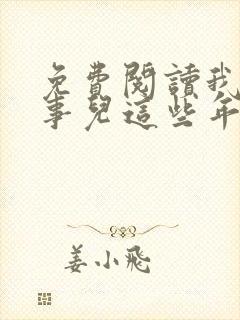 免費閱讀我
事兒這些年
姜小飛